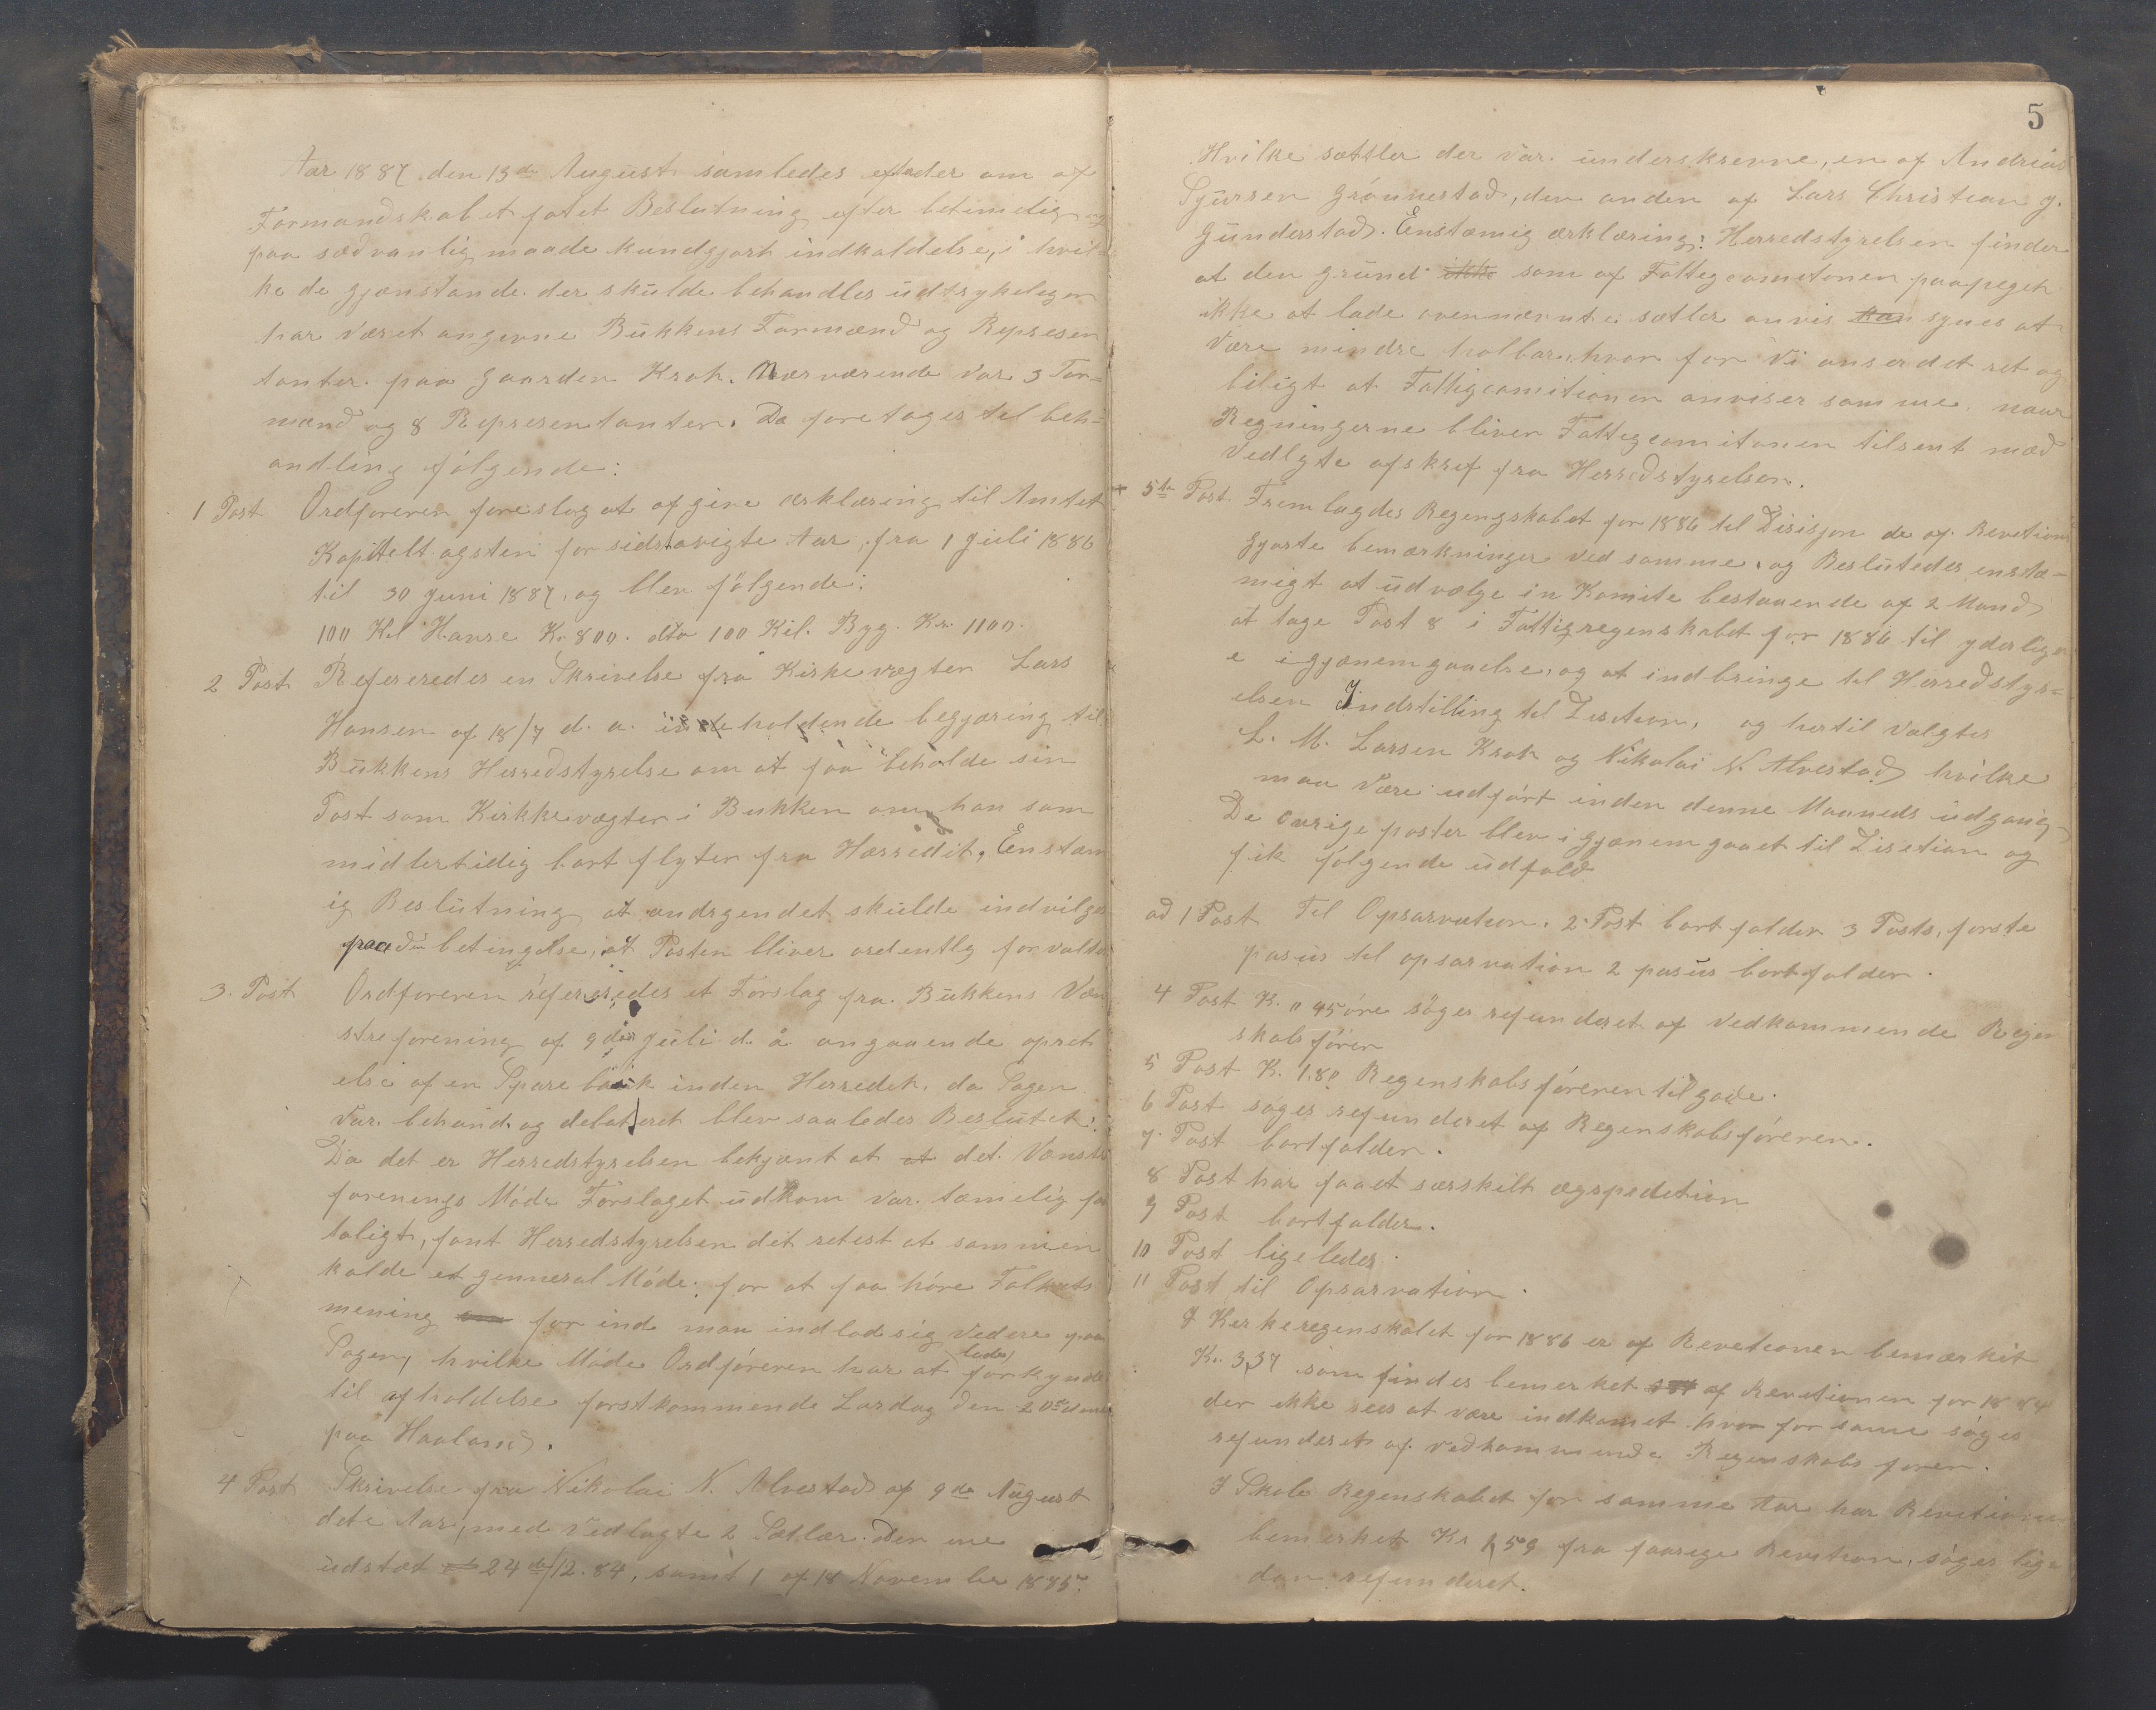 Aar 1887 den 13de August samledes efteder om af
Formandskabet fatet Beslutning efter betimelig og
paa sædvanlig maade kundgjort indkaldelse, i hvil-
ke de gjenstande der skulde behandles udtrykeligen
har været angevne Bukkens Formænd og Represen
tanter paa gaarden Krok. Nærværende var 3 For-
mænd og 8 Represententer. Da foretages tel beh-
andling følgende:
1 Post Ordføreren foreslog at afgive ærklæring til Amtet
Kapitelt agsten for sidstavigte Aar, fra 1 Juli 1886
til 30 Juni 1887, og blev følgende:
100 Kil Havre Kr 800. dto 100 Kil. Byg. Kr. 1100.
2 Post Refereredes en Skrivelse fra Kirkevægter Lars
Hansen af 18/7 d. a. indeholdende begjæring til
Bukkens Herredstyrelse om at faa beholde sin
Post som Kirkkevægter i Bukken om han som
midlertidig bort flyter fra Hærredit, Enstæm
ig Beslutning at andrgendet skulde indvilges
paa den betingelse, at Posten bliver ordentlg forvaltet
3. Post Ordføreren refereredes et Forslag fra Bukkens Væn
streforening af 9de Juli d. å. angaaende opret
else af en Sparebank inden Herredet. da Sagen
var behand. og debateret blev saaledes Beslutet:
Da det er Herredstyrelsen bekjænt at at det Vænstr
forenings Møde Forslaget udkom var tæmelig faa
taligt, fant Herredstyrelsen det retest at sammen
kalde et genneral Møde, for at faa høre Falkets
mening om for ind man indlod sig vedere paa
Sagen, hvilke Møde Ordføreren har at lade forkynde
til afholdelse førstkommende Lørdag den 20de dennes
paa Haaland.
4 Post Skrivelse fra Nikolai N. Alvestad af 9de August
dete Aar, med vedlagte 2 Sætler. Den ene
udstæt 24de/12. 84, samt 1 af 18 November 1885.
5
Hvilke sættler der var underskrevne, en af Andreas
Sjursen Grønnestad, den anden af Lars Christian G.
Gunderstad. Enstæmig ærklæring: Herredstyrelsen finder
at den grund ikke som af Fattegcomitonen paapeget
ikke at lade ovennævnte sætler anvis kan synes at
være mindre holbar, hvor for vi anser det ret og
biligt at Fattigcomitionen anviser samme, naar
Regningerne bliver Fattegcomitonen tilsent mæd
vedlgte afskref fra Herredstyrelsen.
5te Post Fremlagdes Regengskabet for 1886 til Disisjon de af Revetions
gjorte bemærkninger ved samme, og Beslutedes enstæ-
migt at udvælge in Komite bestaaende af 2 Mand
at tage Post 8 i Fattigregenskabet for 1886 til yderliger
e igjænemgaaelse, og at indbringe tel Herredstyr-
elsen Indstilling tel Disition, og hertil valgtes
L. M. Larsen Krok og Nikolai N. Alvestad hvilke
maa være udført inden denne Maaneds udgang,
De øvrige poster blev igjænemgaaet til Disition og
fik følgende udfald
ad 1 Post Til Opsarvation. 2 Post bortfalder 3 Posts, forste
pasus tel opsarvation 2 pasus bortfalder.
4 Post K. " 95 øre søges refunderet af vedkommende Regen
skabsfører
5 Post K. 1.80 Regenskabsføreren til gode.
6 Post søges refunderet af Regenskabsføreren.
7. Post bortfalder.
8 Post har faaet særskilt ægspedition
9 Post bortfalder.
10 Post ligeledes.
11 Post til Opsarvation.
I Kerkeregenskabet for 1886 er af Revetionen bemærkit
Kr. 3,37 som findes bemerket af Revetionen for 1884
der ikke sees at være indkomet hvor for same søges
refunderet af vedkommende Regenskabs fører.
I Skole Regenskabet for samme Aar har Revetionen
bemerket Kr 1,59 fra faarege Revetion, søges lige
dan refunderet.